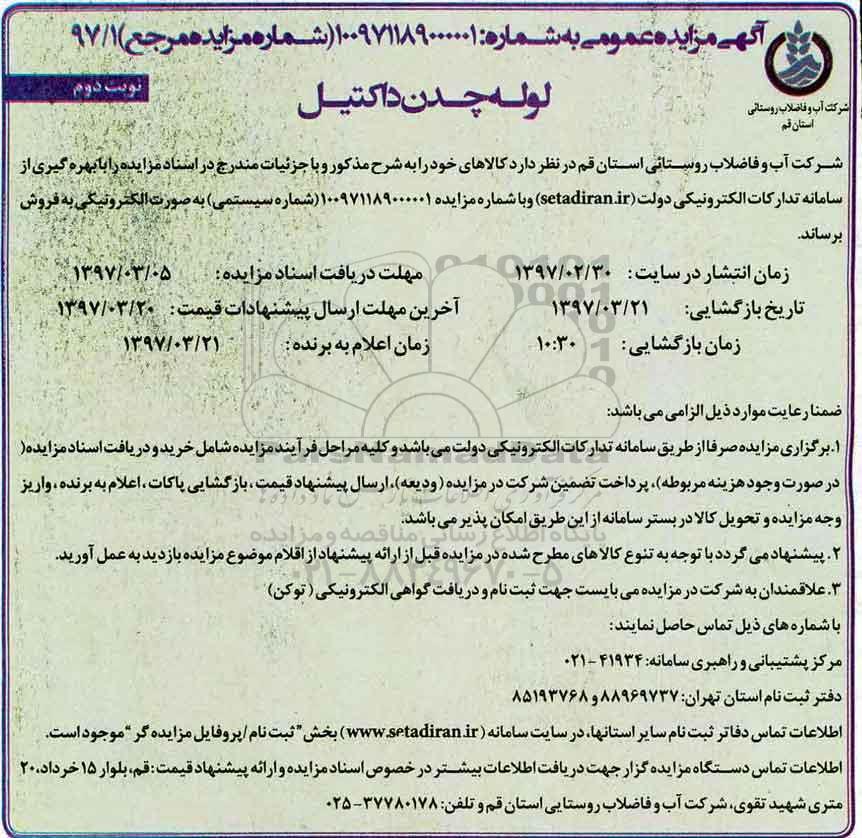 آگهی مزایده عمومی به شماره: ۱۰۰۹۷۱۱۸۹۰۰۰۰۰۱ (شماره مزایده مرجع) ۹۷/۱
شرکت آب و فاضلاب روستائی
استان قم
نوبت دوم
لوله چدن داکتیل
شرکت آب و فاضلاب روستائی استان قم در نظر دارد کالاهای خود را به شرح مذکور و با جزئیات مندرج در اسناد مزایده را با بهره گیری از
سامانه تدارکات الکترونیکی دولت (setadiran.ir) و با شماره مزایده ۱۰۰۹۷۱۱۸۹۰۰۰۰۰۱ (شماره سیستمی) به صورت الکترونیکی به فروش
برساند.
زمان انتشار در سایت: ۱۳۹۷/۰۲/۳۰ مهلت دریافت اسناد مزایده: ۱۳۹۷/۰۳/۰۵
تاریخ بازگشایی: ۱۳۹۷/۰۳/۲۱ آخرین مهلت ارسال پیشنهادات قیمت: ۱۳۹۷/۰۳/۲۰
زمان بازگشایی: ۱۰:۳۰ زمان اعلام به برنده: ۱۳۹۷/۰۳/۲۱
ضمنا رعایت موارد ذیل الزامی می باشد:
۱. برگزاری مزایده صرفا از طریق سامانه تدارکات الکترونیکی دولت می باشد و کلیه مراحل فرآیند مزایده شامل خرید و دریافت اسناد مزایده (
در صورت وجود هزینه مربوطه)، پرداخت تضمین شرکت در مزایده (ودیعه)، ارسال پیشنهاد قیمت، بازگشایی پاکات، اعلام به برنده، واریز
وجه مزایده و تحویل کالا در بستر سامانه از این طریق امکان پذیر می باشد.
۲. پیشنهاد می گردد با توجه به تنوع کالاهای مطرح شده در مزایده قبل از ارائه پیشنهاد از اقلام موضوع مزایده بازدید به عمل آورید.
۳. علاقمندان به شرکت در مزایده می بایست جهت ثبت نام و دریافت گواهی الکترونیکی (توکن)
با شماره های ذیل تماس حاصل نمایند:
مرکز پشتیبانی و راهبری سامانه: ۴۱۹۳۴-۰۲۱
دفتر ثبت نام استان تهران: ۸۸۹۶۹۷۳۷ و ۸۵۱۹۳۷۶۸
اطلاعات تماس دفاتر ثبت نام سایر استانها، در سایت سامانه (www.setadiran.ir) بخش "ثبت نام/پروفایل مزایده گر" موجود است.
اطلاعات تماس دستگاه مزایده گزار جهت دریافت اطلاعات بیشتر در خصوص اسناد مزایده و ارائه پیشنهاد قیمت: قم، بلوار ۱۵ خرداد، ۲۰
متری شهید تقوی، شرکت آب و فاضلاب روستایی استان قم و تلفن: ۳۷۷۸۰۱۷۸-۰۲۵
ParsNamadData
پایگاه اطلاع رسانی مناقصه و مزایده
۰۲۱-۸۸۳۴۹۶۷۰-۵